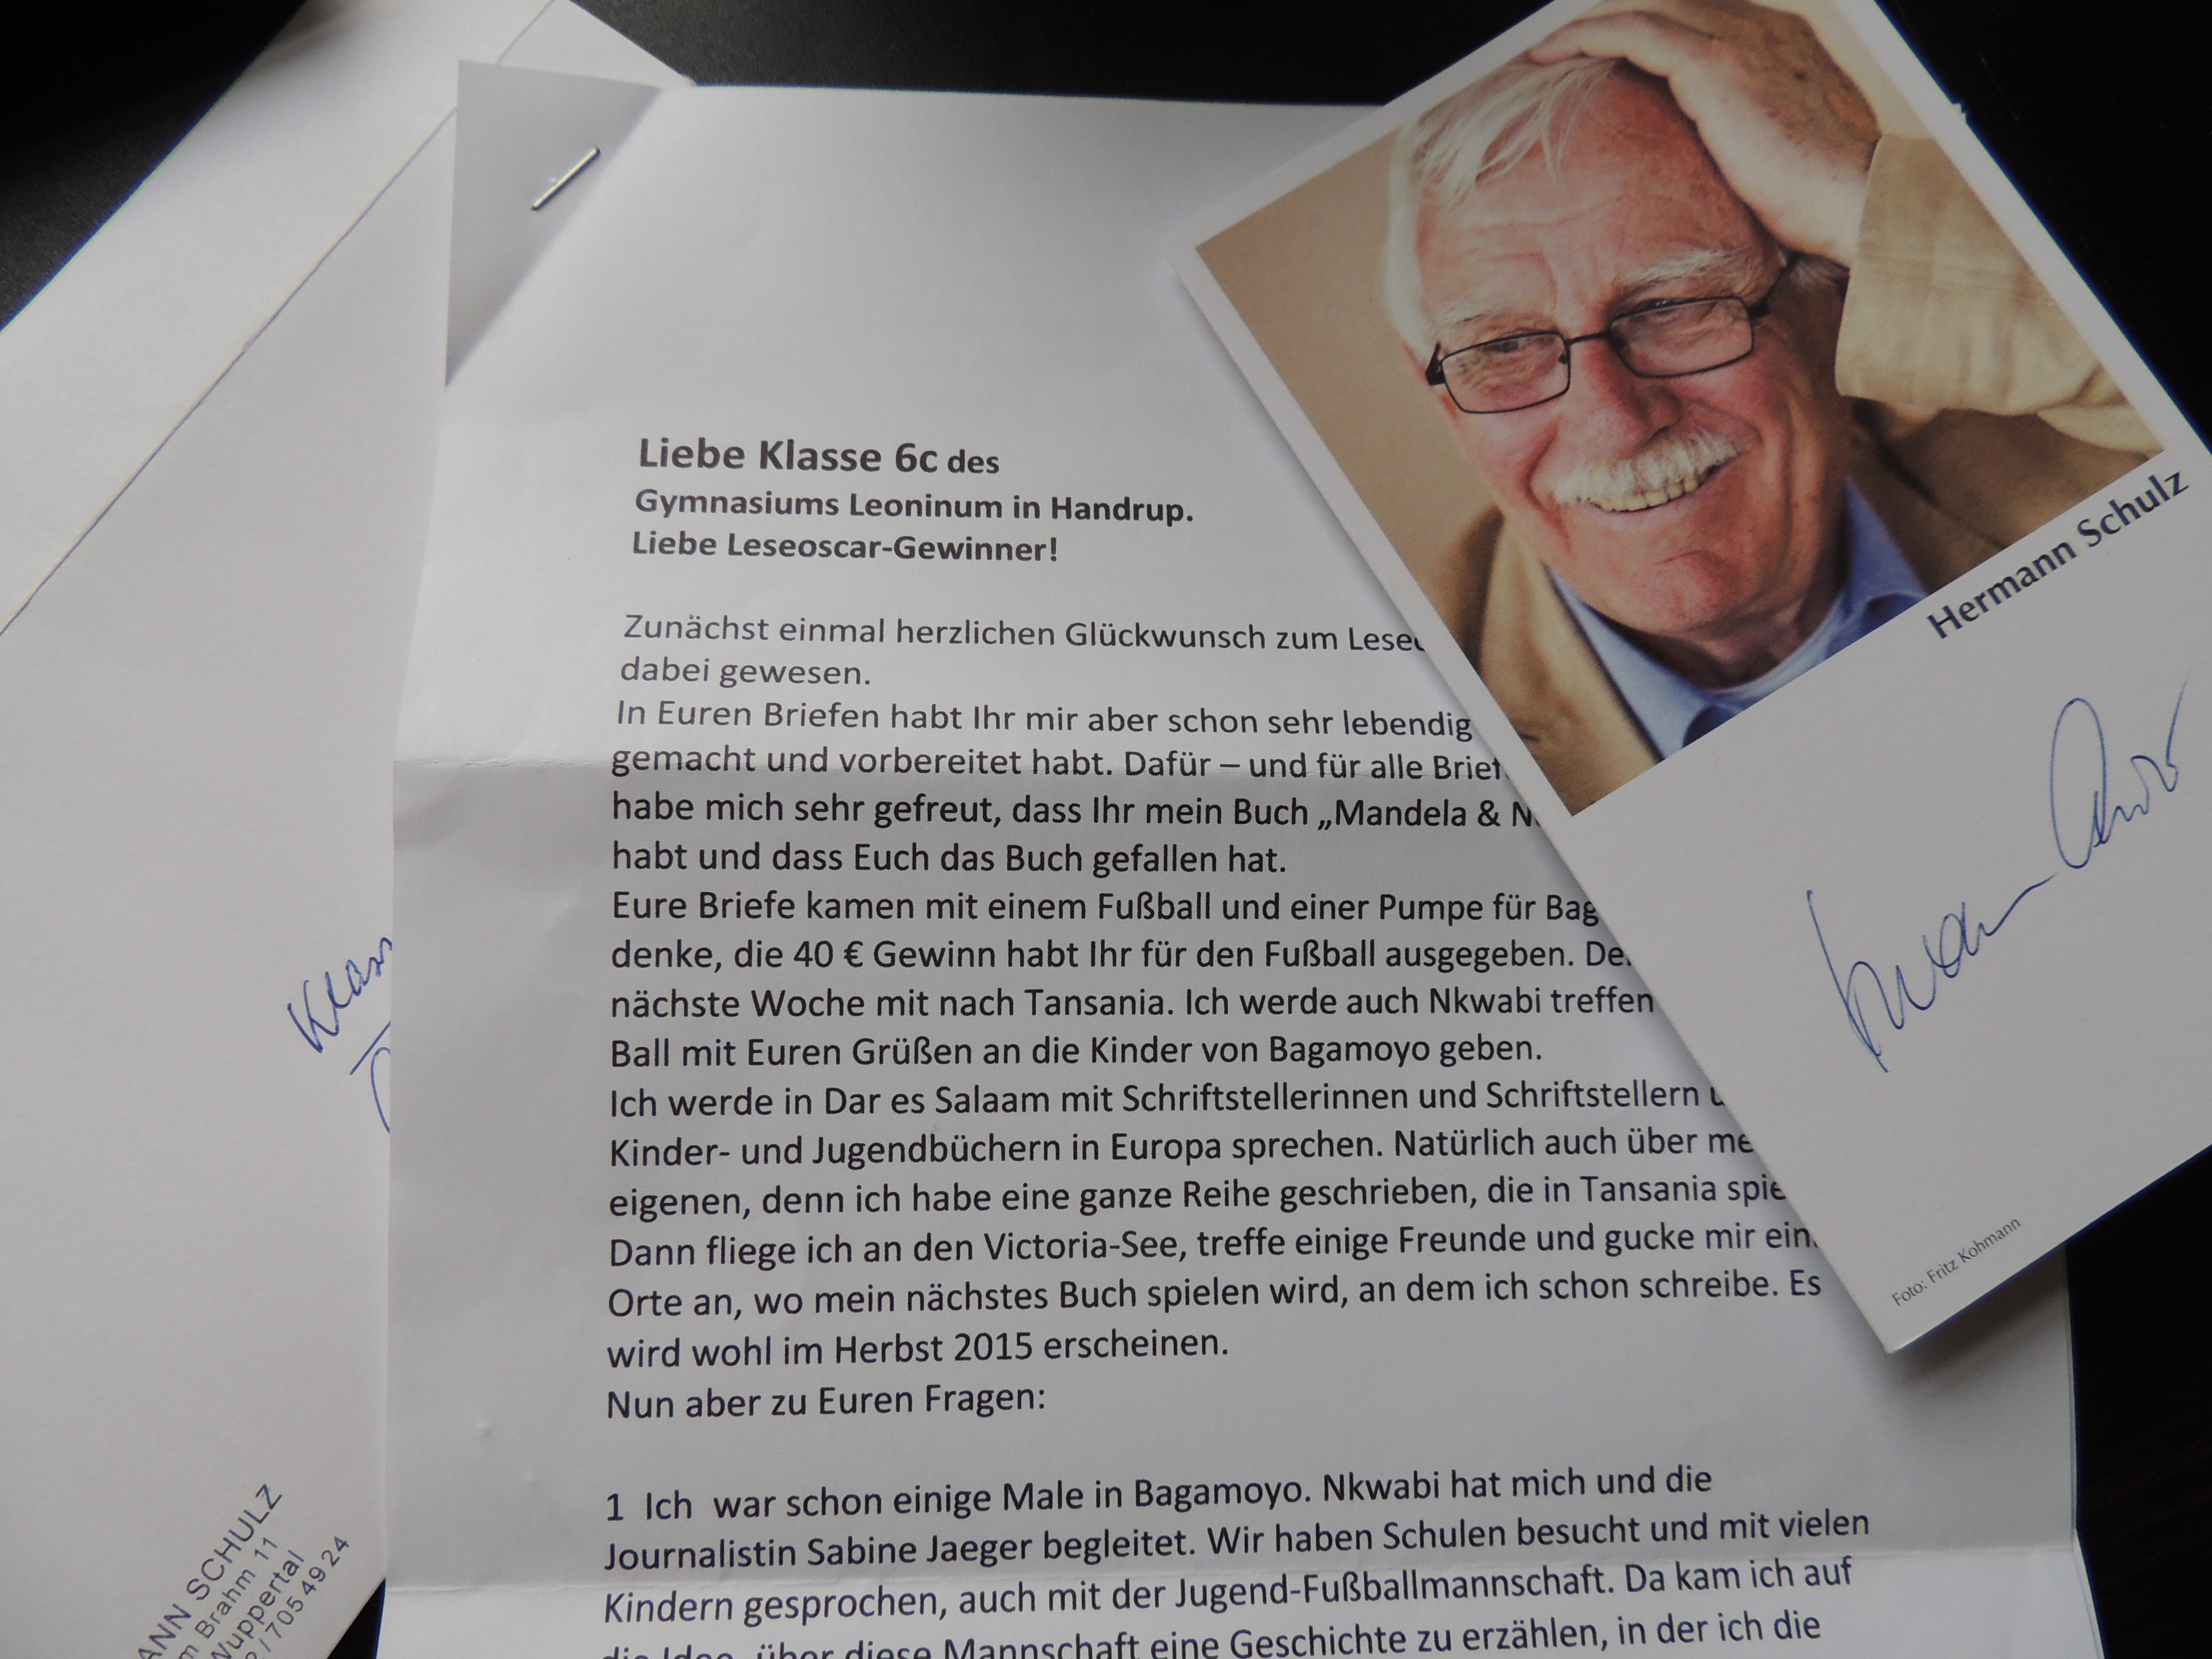 Liebe Klasse 6c des
Gymnasiums Leoninum in Handrup.
Liebe Leseoscar-Gewinner!
Zunächst einmal herzlichen Glückwunsch zum
dabei gewesen.
In Euren Briefen habt Ihr mir aber schon sehr lebendig
gemacht und vorbereitet habt. Dafür – und für alle
habe mich sehr gefreut, dass Ihr mein Buch „Mandela &
habt und dass Euch das Buch gefallen hat.
Eure Briefe kamen mit einem Fußball und einer Pumpe für
denke, die 40 € Gewinn habt Ihr für den Fußball ausgegeben.
nächste Woche mit nach Tansania. Ich werde auch Nkwabi treffen
Ball mit Euren Grüßen an die Kinder von Bagamoyo geben.
Ich werde in Dar es Salaam mit Schriftstellerinnen und Schriftstellern
Kinder- und Jugendbüchern in Europa sprechen. Natürlich auch über
eigenen, denn ich habe eine ganze Reihe geschrieben, die in Tansania
Dann fliege ich an den Victoria-See, treffe einige Freunde und gucke mir
Orte an, wo mein nächstes Buch spielen wird, an dem ich schon schreibe. Es
wird wohl im Herbst 2015 erscheinen.
Nun aber zu Euren Fragen:
1 Ich war schon einige Male in Bagamoyo. Nkwabi hat mich und die
Journalistin Sabine Jaeger begleitet. Wir haben Schulen besucht und mit vielen
Kindern gesprochen, auch mit der Jugend-Fußballmannschaft. Da kam ich auf
die Idee, über diese Mannschaft eine Geschichte zu erzählen, in der ich die
Hermann Schulz
Foto: Fritz Kohmann
SCHULZ
Brahm 11
Wuppertal
7054924